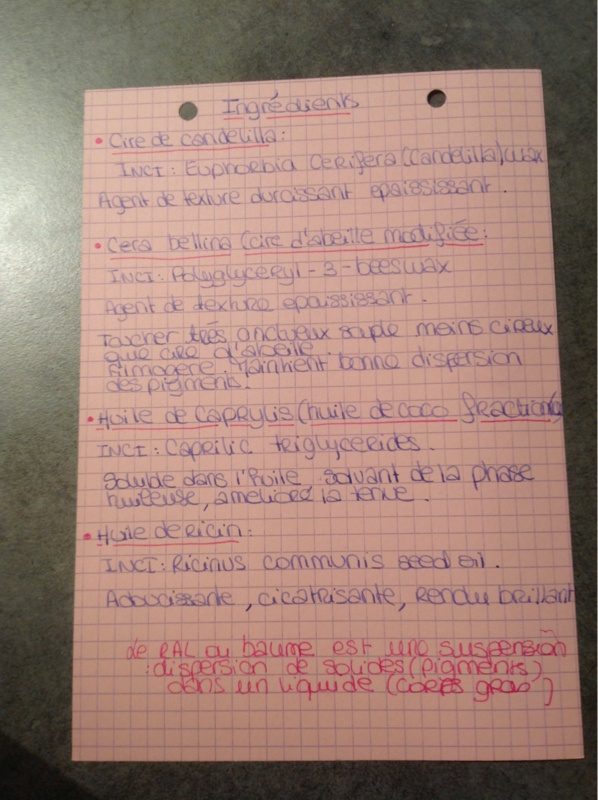 Ingrédients
• Cire de candelilla:
INCI: Euphorbia Cerifera (Candelilla) wax
Agent de texture durcissant epaississant.
• Cera bellina (cire d'abeille modifiée:
INCI: Polyglyceryl-3-beeswax
Agent de texture epaississant.
Toucher très onctueux souple moins cireux
que cire d'abeille.
filmogère. Maintient bonne dispersion
des pigments.
• Huile de caprylis (huile de coco fractionnée)
INCI: Caprilic triglycerides.
Soluble dans l'huile, solvant de la phase
huileuse, améliore la tenue.
• Huile de ricin:
INCI: Ricinus communis seed oil.
Adoucissante, cicatrisante, Rendu brillant
de RAL ou baume est une suspension
: dispersion de solides (pigments)
dans un liquide (corps gras)